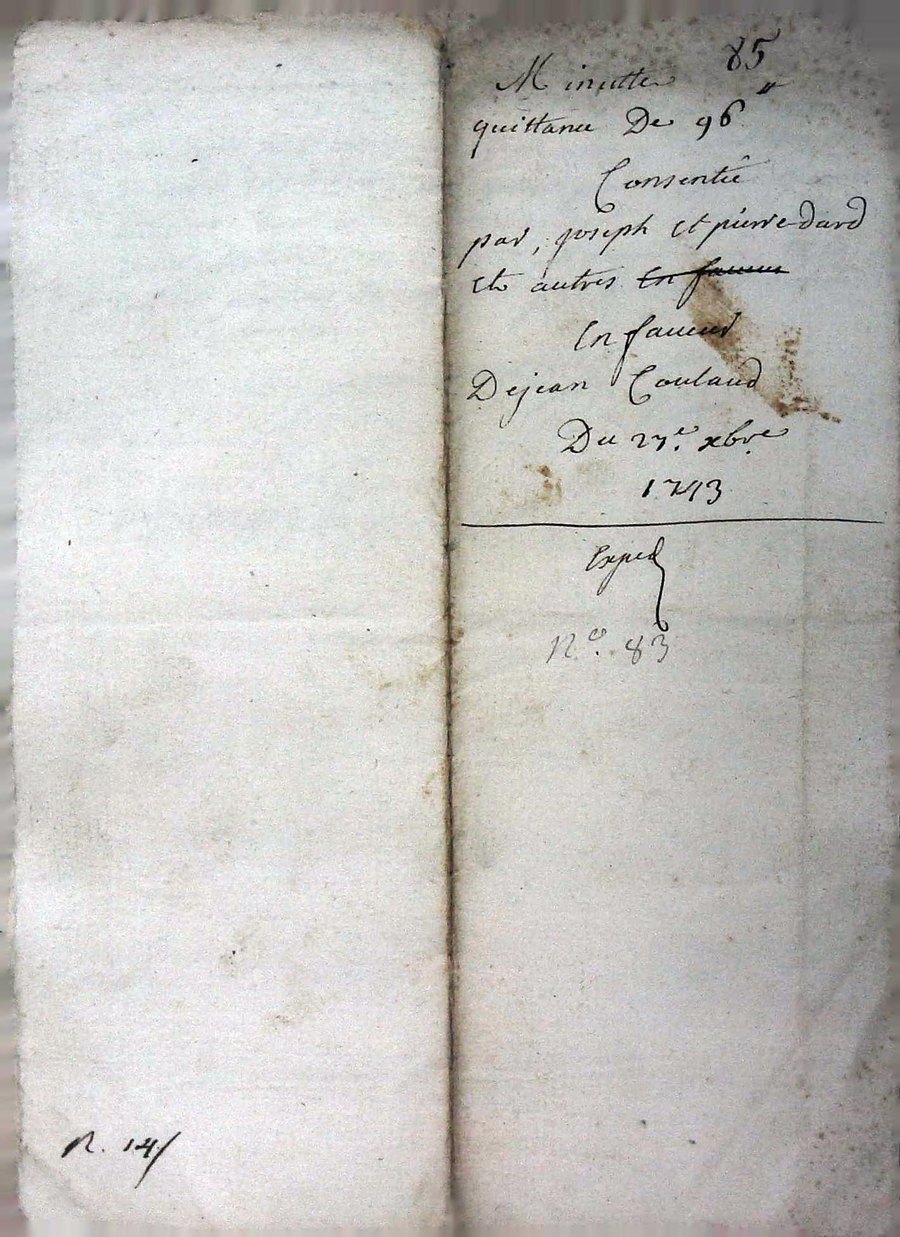 85
Minutte
quittance De 96 ″
Consentie
par, joseph et pierre dard
et autres en faveur
En faveur
De jean Coulaud
Du 27.e xbre
1743
Exped
N.o 83
R. 14/